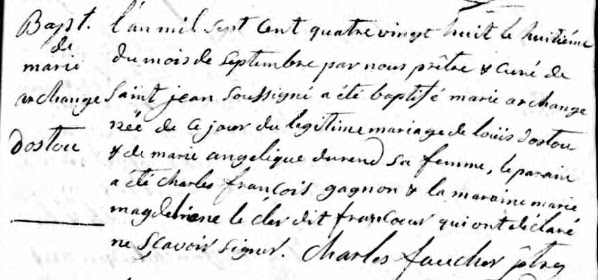 Bapt.
de
marie
archange
Dostou
l'an mil sept cent quatre vingt huit le huitiéme
du mois de septembre par nous prêtre & curé de
saint jean soussigné a été baptisé marie archange
née de ce jour du legitime mariage de loüis Dostou
& de marie angelique durend sa femme, le parain
a été charles françois gagnon & la maraine marie
magdeleine le cler dit francœur qui ont déclaré
ne sçavoir signer. Charles faucher ptre